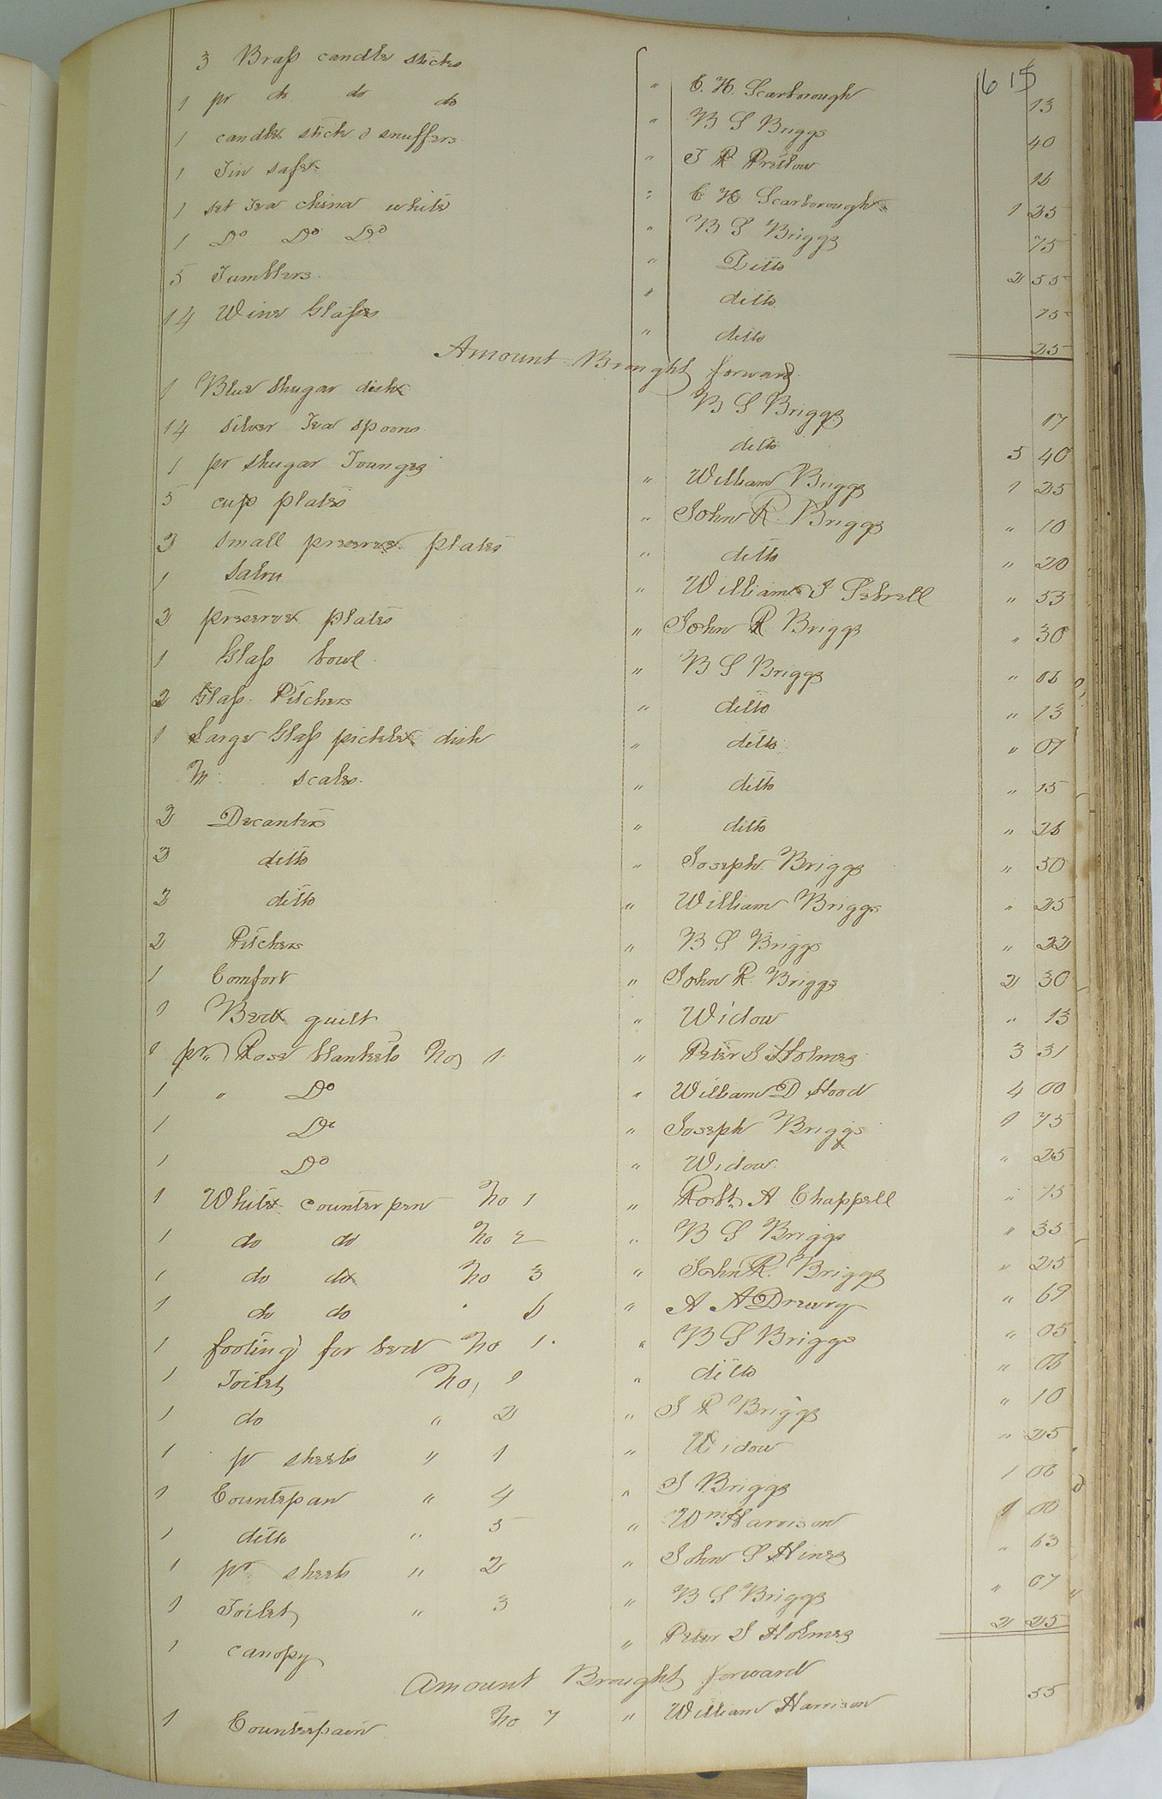 615
3 Brass candle sticks " C. H. Scarborough 13
1 pr do do do " B S Briggs 40
1 candle stick & snuffers " J R Pretlow 16
1 Tin safe " C H Scarborough 1 25
1 set Tea china white " B S Briggs 75
1 Do Do Do " Ditto 2 55
5 Tumblers " ditto 75
14 Wine Glasses " ditto 25
Amount Brought forward
1 Blue Shugar dish B S Briggs 17
14 silver Tea spoons ditto 5 40
1 pr Shugar Tounges " William Briggs 1 25
5 cup plates " John R Briggs " 10
3 small preserve plates " ditto " 20
1 Salver " William J " 53
2 preserve plates " John R Briggs " 30
1 Glass bowl " B S Briggs " 06
2 Glass Pitchers " ditto " 13
1 Large Glass pickle dish " ditto " 07
scales " ditto " 15
2 Decanters " ditto " 26
2 ditto " Joseph Briggs " 50
2 ditto " William Briggs " 25
2 Pitchers " B S Briggs " 22
1 Comfort " John R Briggs 2 30
1 Bed quilt " Widow " 13
1 pr Rose blankets No 1 " Peter S Holmes 3 31
1 " Do " William D Hood 4 00
1 Do " Joseph Briggs 1 75
1 Do " Widow " 25
1 White counterpen No 1 " Robt. A Chappell " 75
1 do do No 2 " B S Briggs " 35
1 do do No 3 " John R. Briggs " 25
1 do do " 6 " A A Drewry " 69
1 footing for bed No 1 " B S Briggs " 05
1 Toilet No, 1 " ditto " 06
1 do " 2 " J R Briggs " 10
1 pr sheets " 1 " Widow " 25
1 Counterpan " 4 " J Briggs 1 06
1 ditto " 5 " Wm Harrison 1 00
1 pr sheets " 2 " John S Hines " 63
1 Toilet " 3 " B S Briggs " 07
1 canopy " Peter S Holmes 2 25
Amount Brought forward
1 Counterpain No 7 " William Harrison 55